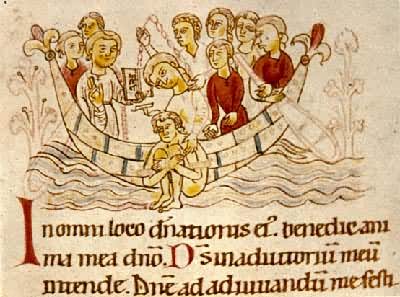 In omni loco dn̄ationis ei᾿. benedic ani
ma mea dn̄o. Ds̄ in adiutoriū meū
intende. Dn̄e ad adiuuandū me festi